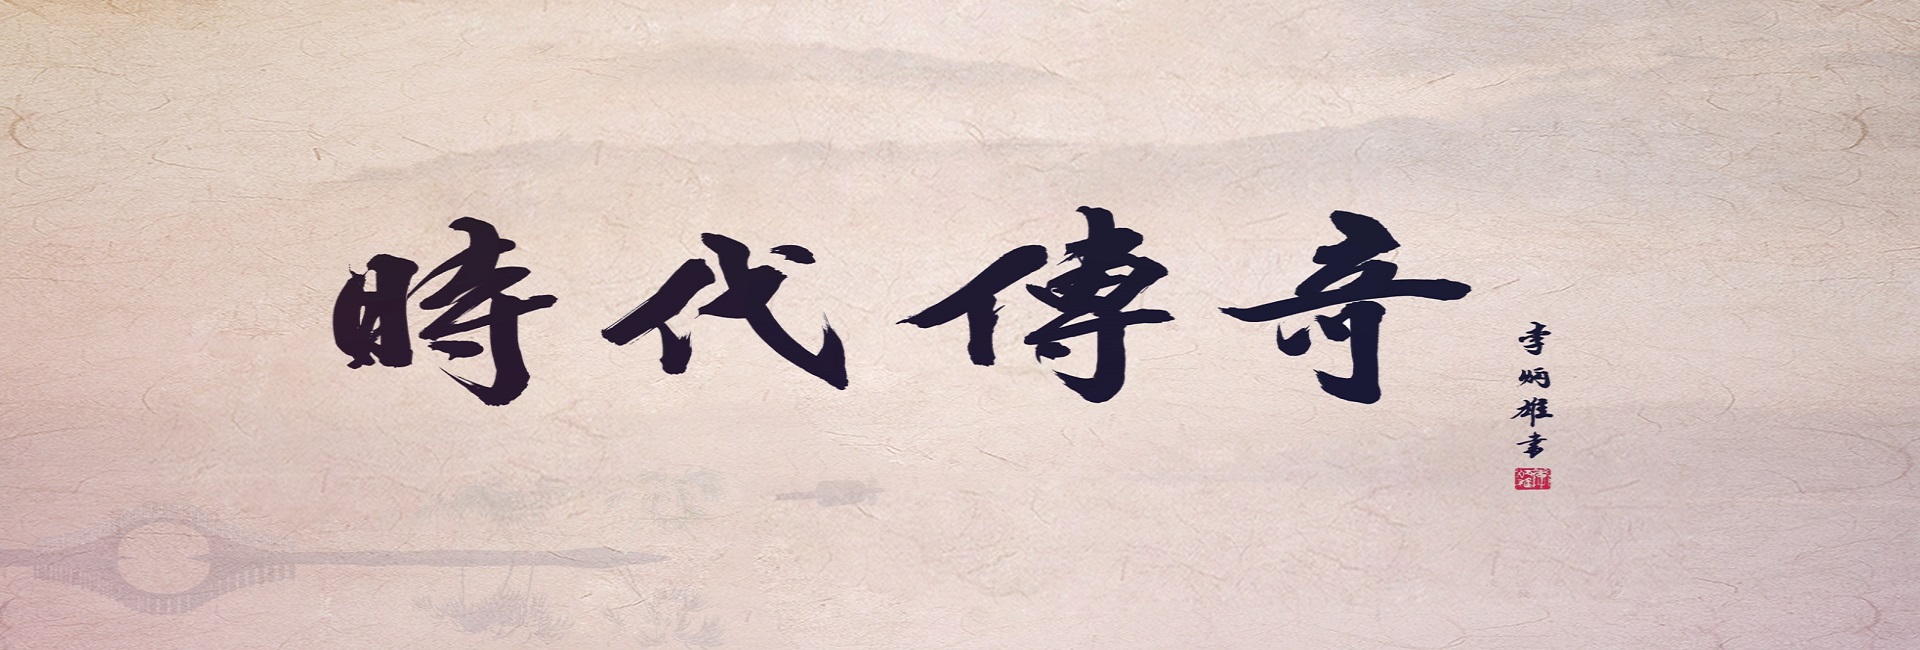 時代傳奇
李炳雄書